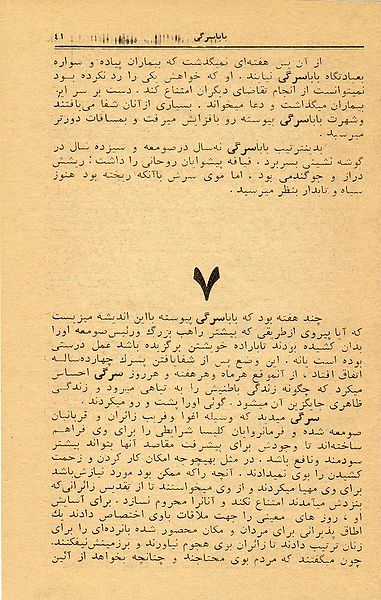 باباسرگی
۴۱
از آن پس هفته‌ای نمیگذشت که بیماران پیاده و سواره
بعبادتگاه باباسرگی نیایند . او که خواهش یکی را رد نکرده بود
نمیتوانست از انجام تقاضای دیگران امتناع کند . دست بر سر این
بیماران میگذاشت و دعا میخواند . بسیاری ازآنان شفا می‌یافتند
وشهرت باباسرگی پیوسته رو بافزایش میرفت و بمسافات دورتر
میرسید .
بدینترتیب باباسرگی نه‌سال درصومعه و سیزده سال در
گوشه نشینی بسربرد . قیافه پیشوایان روحانی را داشت : ریشش
دراز و جوگندمی بود ، اما موی سرش باآنکه ریخته بود هنوز
سیاه و تابدار بنظر میرسید .
۷
چند هفته بود که باباسرگی پیوسته بااین اندیشه میزیست
که آیا پیروی ازطریقی که بیشتر راهب بزرگ ورئیس‌صومعه اورا
بدان کشیده بودند تاباراده خویشتن برگزیده باشد عمل درستی
بوده است یانه . این وضع پس از شفایافتن پسرك چهارده‌ساله
اتفاق افتاد ، از آنموقع هرماه وهرهفته و هرروز سرگی احساس
میکرد که چگونه زندگی باطنیش را به تباهی میرود و زندگی
ظاهری جایگزین آن میشود . گوئی اورا پشت و رو میکردند .
سرگی میدید که وسیله اغوا وفریب زائران و قربانیان
صومعه شده و فرمانروایان کلیسا شرایطی را برای وی فراهم
ساخته‌اند تا وجودش برای پیشرفت مقاصد آنها بتواند بیشتر
سودمند ونافع باشد . در مثل بهیچوجه امکان کار کردن و زحمت
کشیدن را بوی نمیدادند . آنچه راکه ممکن بود مورد نیازش‌باشد
برای وی مهیا میکردند و از وی میخواستند تا از تقدیس زائرانی‌که
بنزدش میآمدند امتناع نکند و آنانرا محروم نسازد . برای آسایش
او ، روز های معینی را جهت ملاقات باوی اختصاص دادند یك
اطاق پذیرائی برای مردان و مکان محصور شده بانرده‌ای را برای
زنان ترتیب دادند تا زائران بوی هجوم نیاورند و برزمینش‌نیفکنند.
چون میگفتند که مردم بوی محتاجند و چنانچه بخواهد از آئین